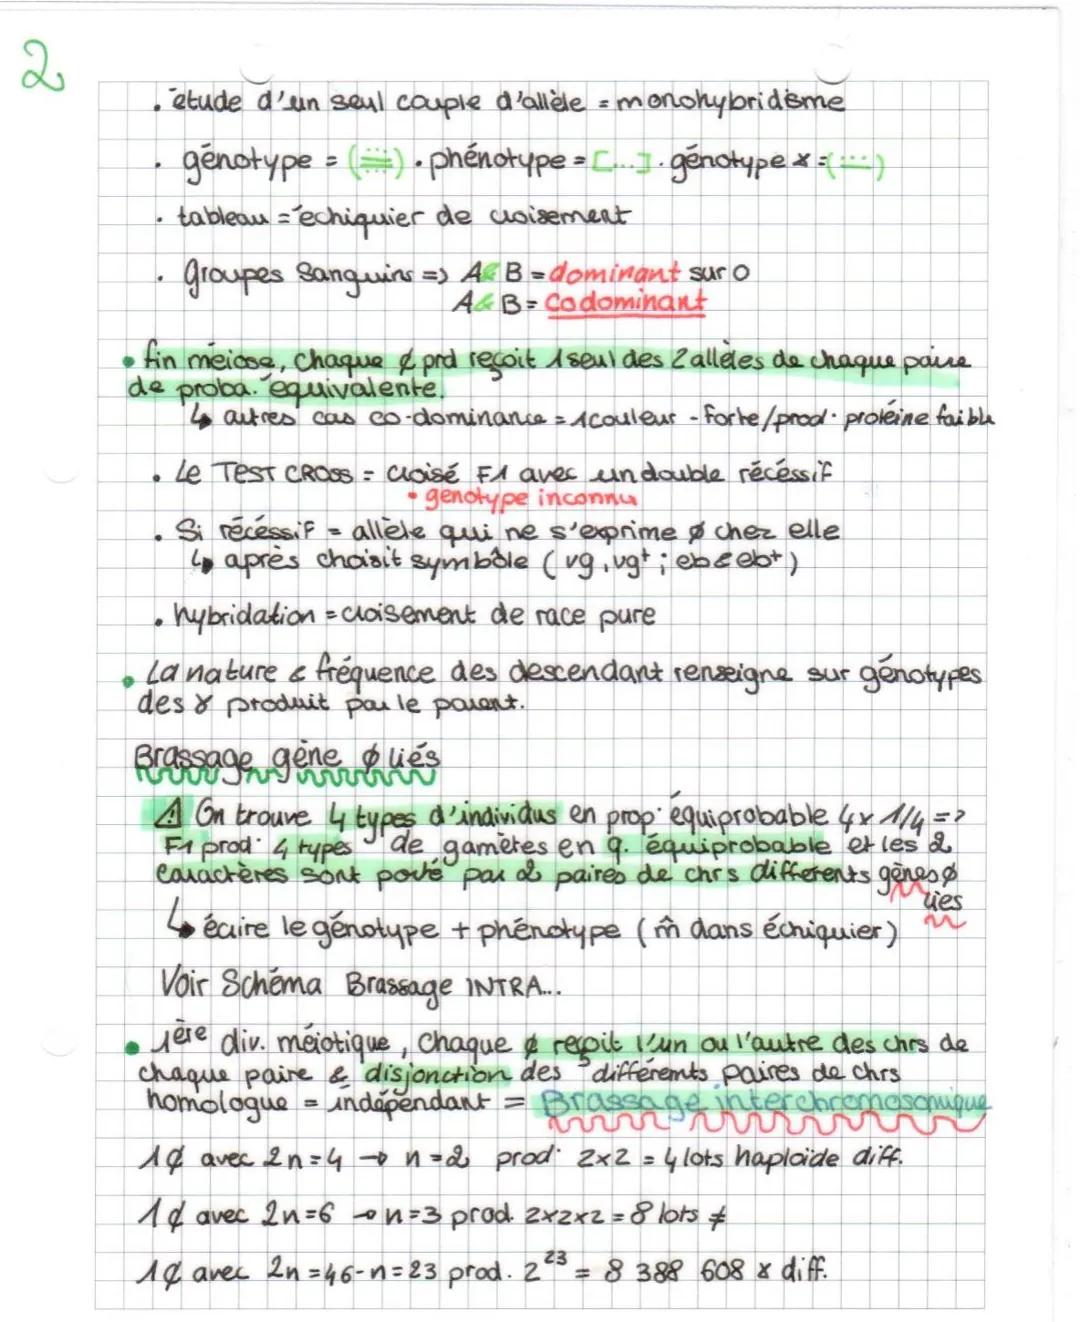 2
• étude d'un seul couple d'allèle = monohybridisme
• génotype = (  ) • phénotype = [...] • génotype x = (  )
• tableau = échiquier de croisement
• groupes Sanguins => A & B = dominant sur O
A & B = Codominant
• fin méiose, chaque ¢ prd reçoit 1 seul des 2 allèles de chaque paire
de proba. équivalente.
↳ autres cas co-dominance = 1 couleur - forte/prod· protéine faible
• Le TEST CROSS = croisé F1 avec un double récéssif
• génotype inconnu
• Si récéssif = allèle qui ne s'exprime ø chez elle
↳ après choisit symbôle ( vg, vg+ ; eb & eb+ )
• hybridation = croisement de race pure
• La nature & fréquence des descendant renseigne sur génotypes
des γ produit par le parent.
Brassage gène ø liés
⚠ On trouve 4 types d'individus en prop· équiprobable 4 x 1/4 =>
F1 prod· 4 types de gamètes en q. équiprobable et les 2
caractères sont porté par 2 paires de chrs différents gènes ø
liés
↳ écrire le génotype + phénotype ( m̂ dans échiquier )
Voir Schéma Brassage INTRA...
• 1ère div. méiotique, chaque ¢ reçoit l'un ou l'autre des chrs de
chaque paire & disjonction des différents paires de chrs
homologue = indépendant = Brassage interchromosomique
1¢ avec 2n=4 → n=2 prod· 2x2 = 4 lots haploïde diff.
1¢ avec 2n=6 → n=3 prod. 2x2x2 = 8 lots ≠
1¢ avec 2n=46 - n=23 prod. 2²³ = 8 388 608 γ diff.